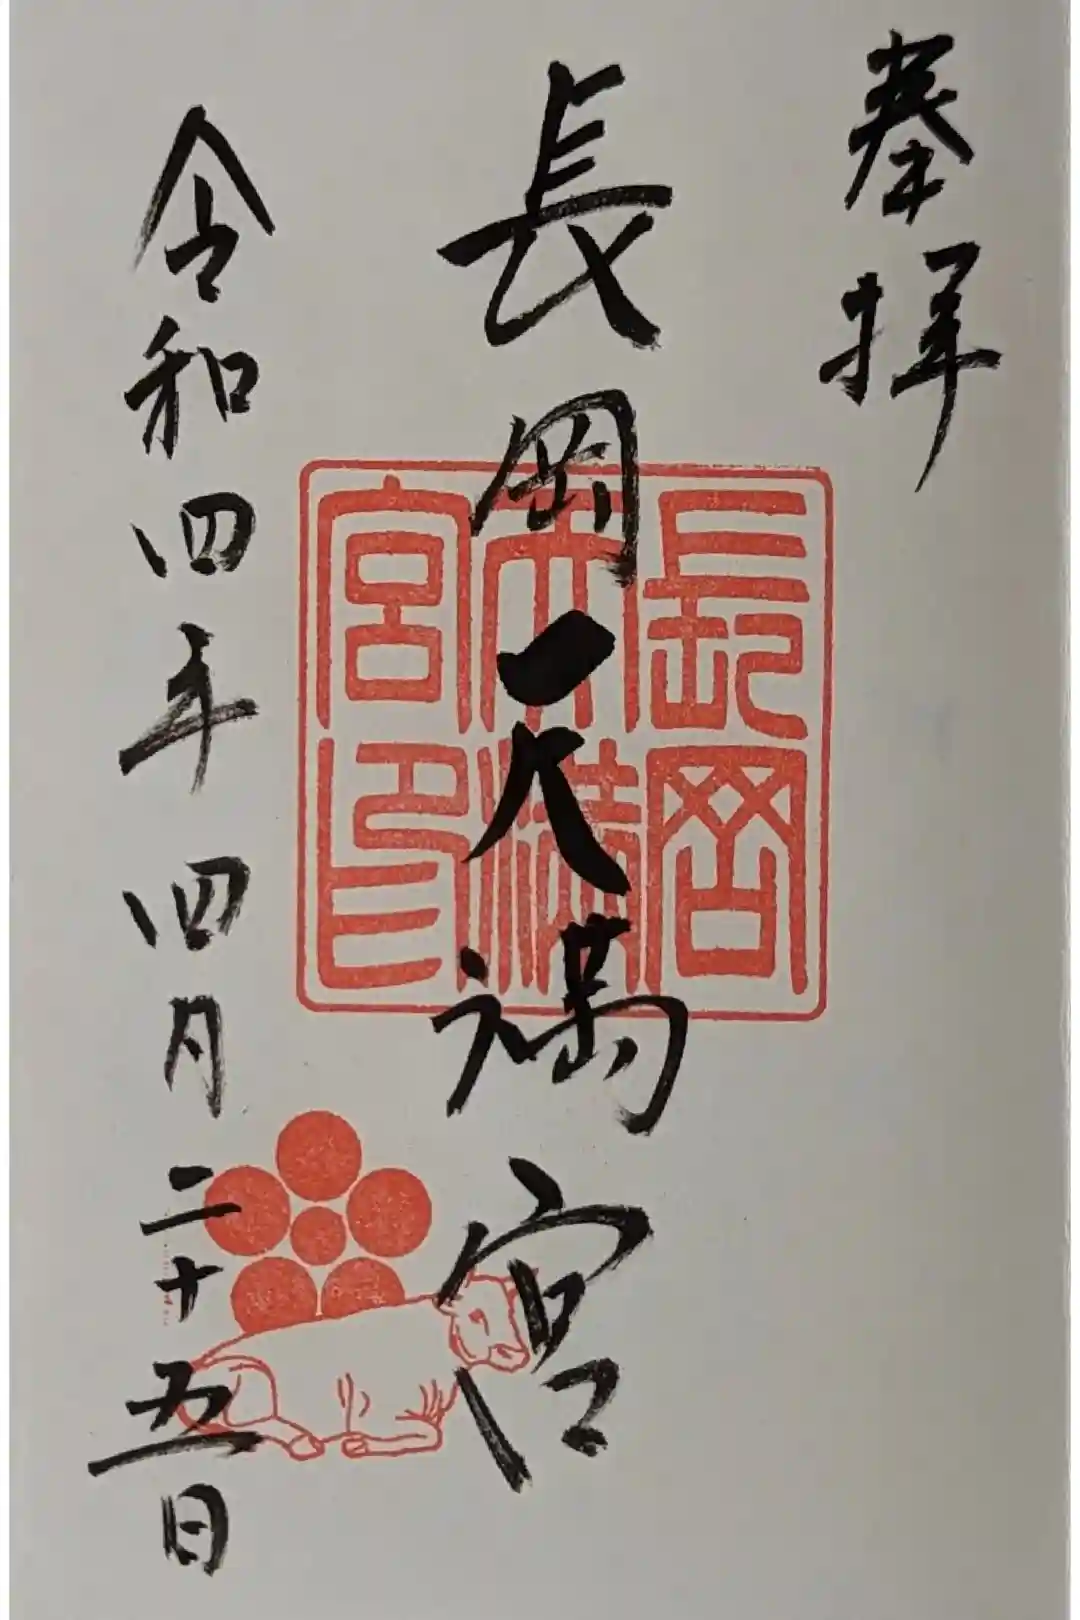 奉拝
長岡天満宮
長岡
天満
宮印
令和四年四月二十五日